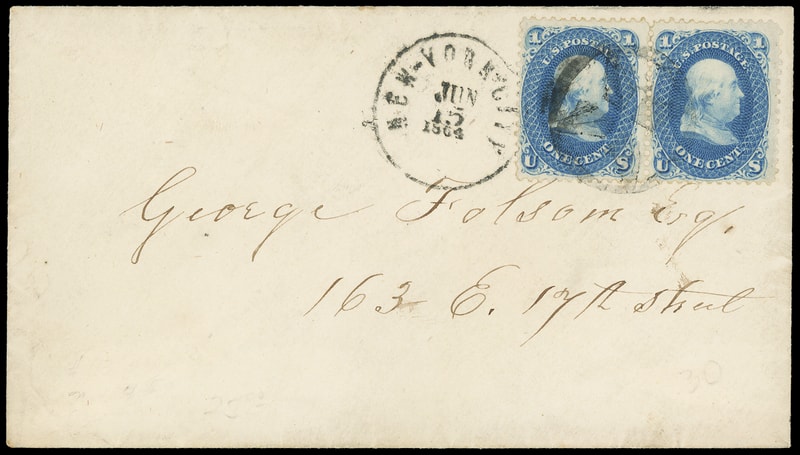 NEW-YORK CITY
JUN
15
1864
1 1
U.S. POSTAGE
ONE CENT
U S
1 1
U.S. POSTAGE
ONE CENT
U S
George Folsom Esq.
163 E. 17th street